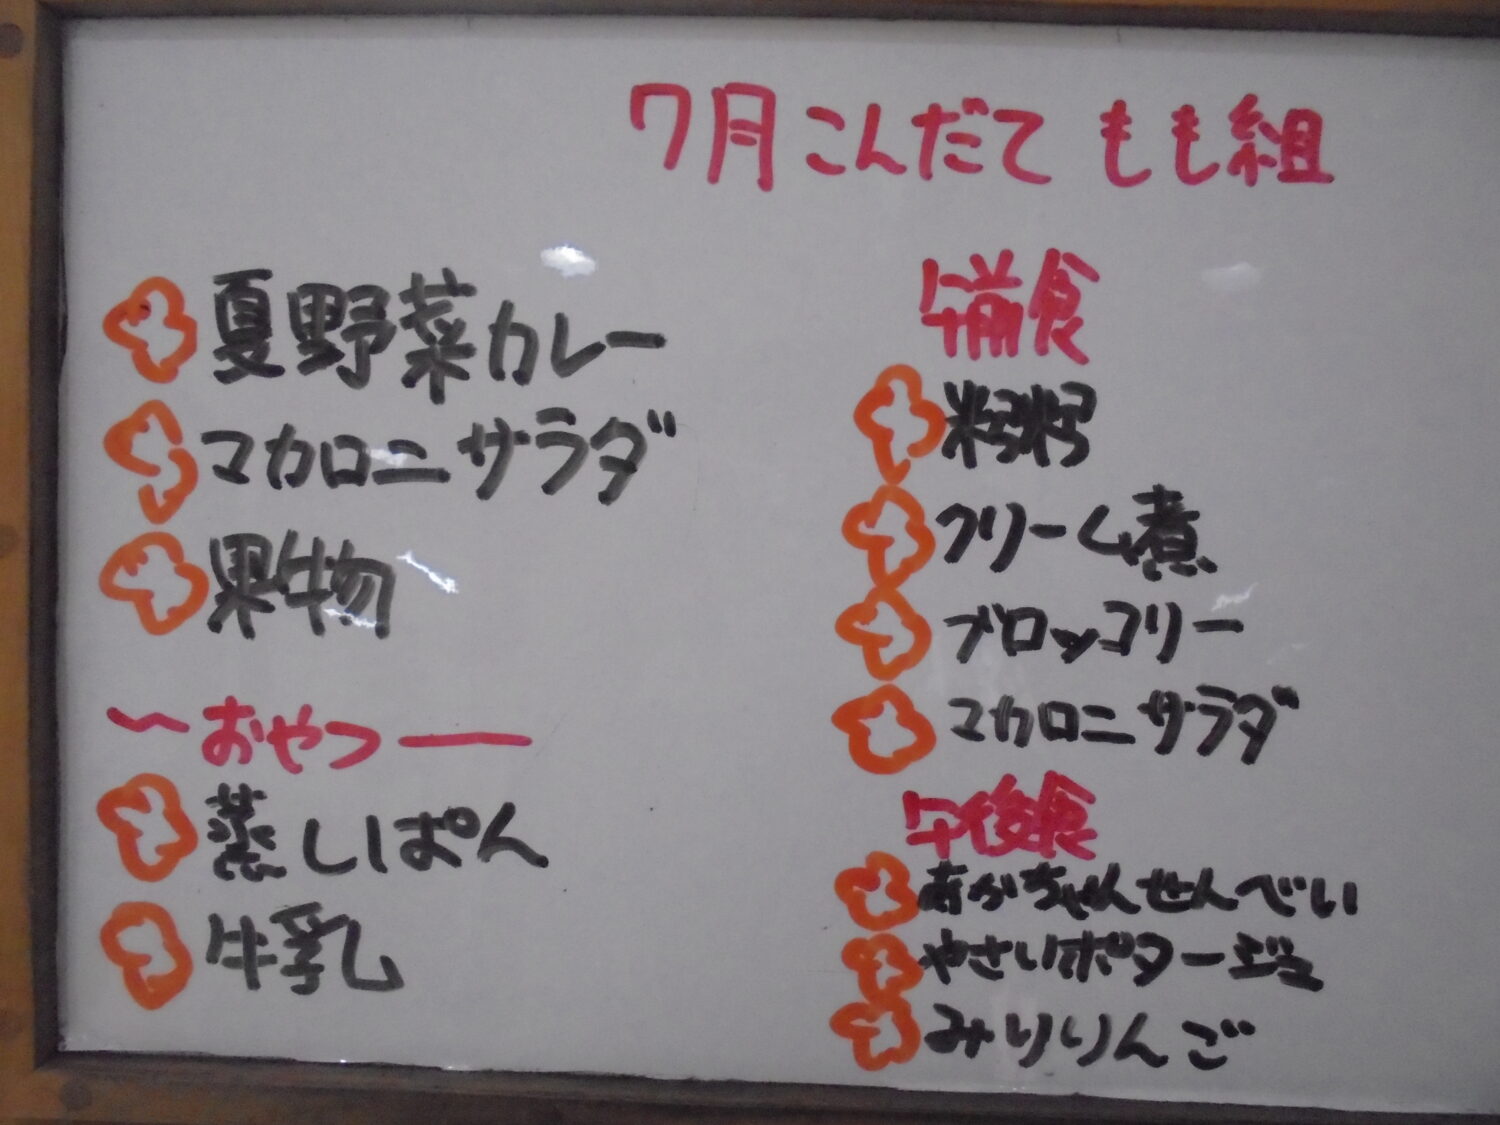 7月こんだて もも組
夏野菜カレー
マカロニサラダ
果物
〜おやつー
蒸しぱん
牛乳
午前食
クリーム煮
ブロッコリー
マカロニサラダ
午後食
あかちゃんせんべい
やさいポタージュ
みりりんご